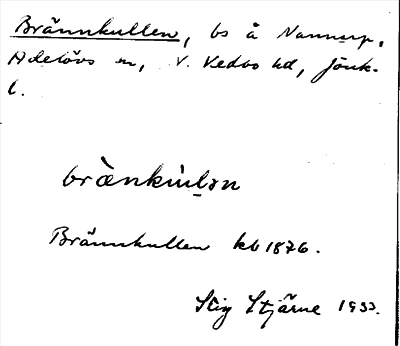 Brännkullen, bs å Nannarp,
Adelövs sn, V. Vedbo hd, Jönk.
l.
bràenkùlən
Brännkullen kb 1876.
Stig Stjärne 1933.